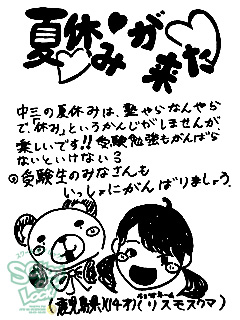 夏休みが
来た
中三の夏休みは、塾やらなんやら
で、「休み」というかんじがしませんが
楽しいです!! 受験勉強もがんばら
ないといけないる
◎受験生のみなさんも
いっしょにがんばりましょう。
(鹿児島県)(14才)(リスモスクマ)